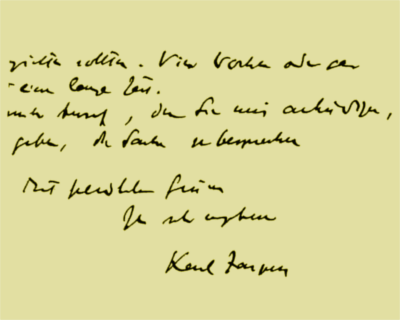 sollten. Vier Wochen oder gar
eine lange Zeit.
Besuch, den Sie mir ankündigen,
geben, die Sache zu besprechen
Mit herzlichen Grüssen
Ihr sehr ergebener
Karl Jaspers